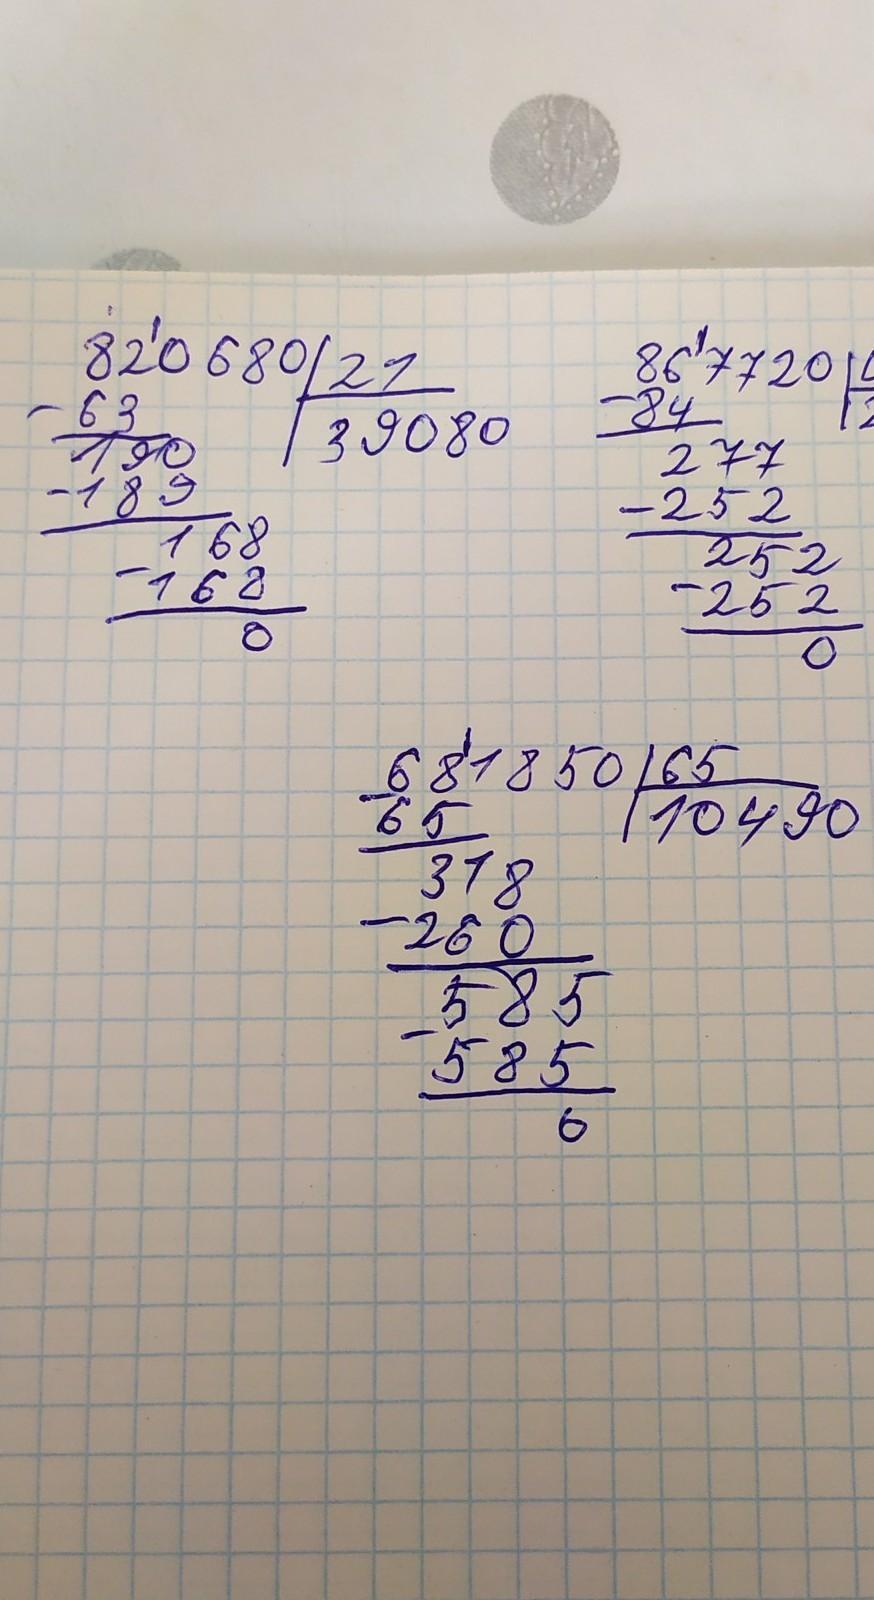 820680 | 21
- 63
39080
190
- 189
168
- 168
0
867720
- 84
277
- 252
252
- 252
0
681850 | 65
- 65
10490
318
- 260
585
- 585
0